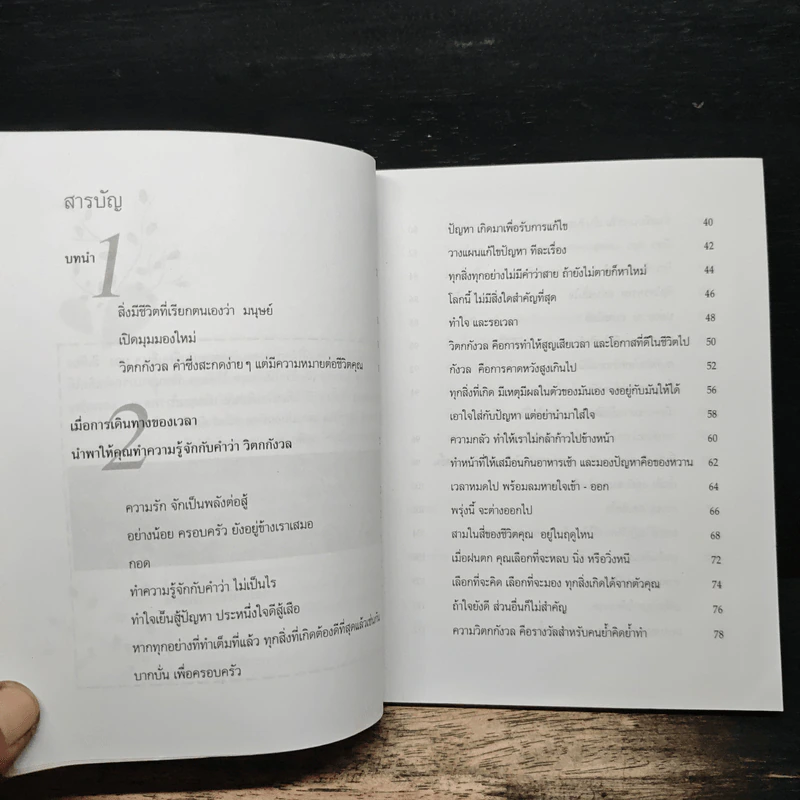 สารบัญ
1
บทนำ
สิ่งมีชีวิตที่เรียกตนเองว่า มนุษย์
เปิดมุมมองใหม่
วิตกกังวล คำซึ่งสะกดง่ายๆ แต่มีความหมายต่อชีวิตคุณ
2
เมื่อการเดินทางของเวลา
นำพาให้คุณทำความรู้จักกับคำว่า วิตกกังวล
ความรัก จักเป็นพลังต่อสู้
อย่างน้อย ครอบครัว ยังอยู่ข้างเราเสมอ
กอด
ทำความรู้จักกับคำว่า ไม่เป็นไร
ทำใจเย็นสู้ปัญหา ประหนึ่งใจดีสู้เสือ
หากทุกอย่างที่ทำเต็มที่แล้ว ทุกสิ่งที่เกิดต้องดีที่สุดแล้วเช่นกัน
บากบั่น เพื่อครอบครัว
ปัญหา เกิดมาเพื่อรับการแก้ไข 40
วางแผนแก้ไขปัญหา ทีละเรื่อง 42
ทุกสิ่งทุกอย่างไม่มีคำว่าสาย ถ้ายังไม่ตายก็หาใหม่ 44
โลกนี้ ไม่มีสิ่งใดสำคัญที่สุด 46
ทำใจ และรอเวลา 48
วิตกกังวล คือการทำให้สูญเสียเวลา และโอกาสที่ดีในชีวิตไป 50
กังวล คือการคาดหวังสูงเกินไป 52
ทุกสิ่งที่เกิด มีเหตุมีผลในตัวของมันเอง จงอยู่กับมันให้ได้ 56
เอาใจใส่กับปัญหา แต่อย่านำมาใส่ใจ 58
ความกลัว ทำให้เราไม่กล้าก้าวไปข้างหน้า 60
ทำหน้าที่ให้เสมือนกินอาหารเช้า และมองปัญหาคือของหวาน 62
เวลาหมดไป พร้อมลมหายใจเข้า - ออก 64
พรุ่งนี้ จะต่างออกไป 66
สามในสี่ของชีวิตคุณ อยู่ในฤดูไหน 68
เมื่อฝนตก คุณเลือกที่จะหลบ นิ่ง หรือวิ่งหนี 72
เลือกที่จะคิด เลือกที่จะมอง ทุกสิ่งเกิดได้จากตัวคุณ 74
ถ้าใจยังดี ส่วนอื่นก็ไม่สำคัญ 76
ความวิตกกังวล คือรางวัลสำหรับคนย้ำคิดย้ำทำ 78